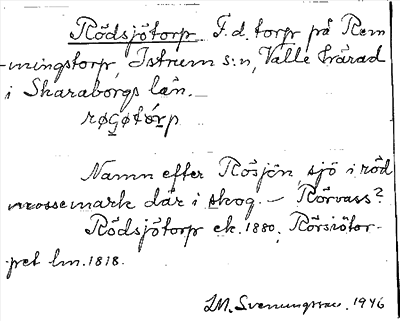 Rödsjötorp. F.d. torp på Rem
mingstorp, Istrum s:n, Valle härad
i Skaraborgs län.
røGøtórp
Namn efter Rösjön, sjö i röd
mossemark där i skog. — Rörvass?
Rödsjötorp ek. 1880, Rörsiötor-
pet lm. 1818.
LM. Svenungsson. 1946